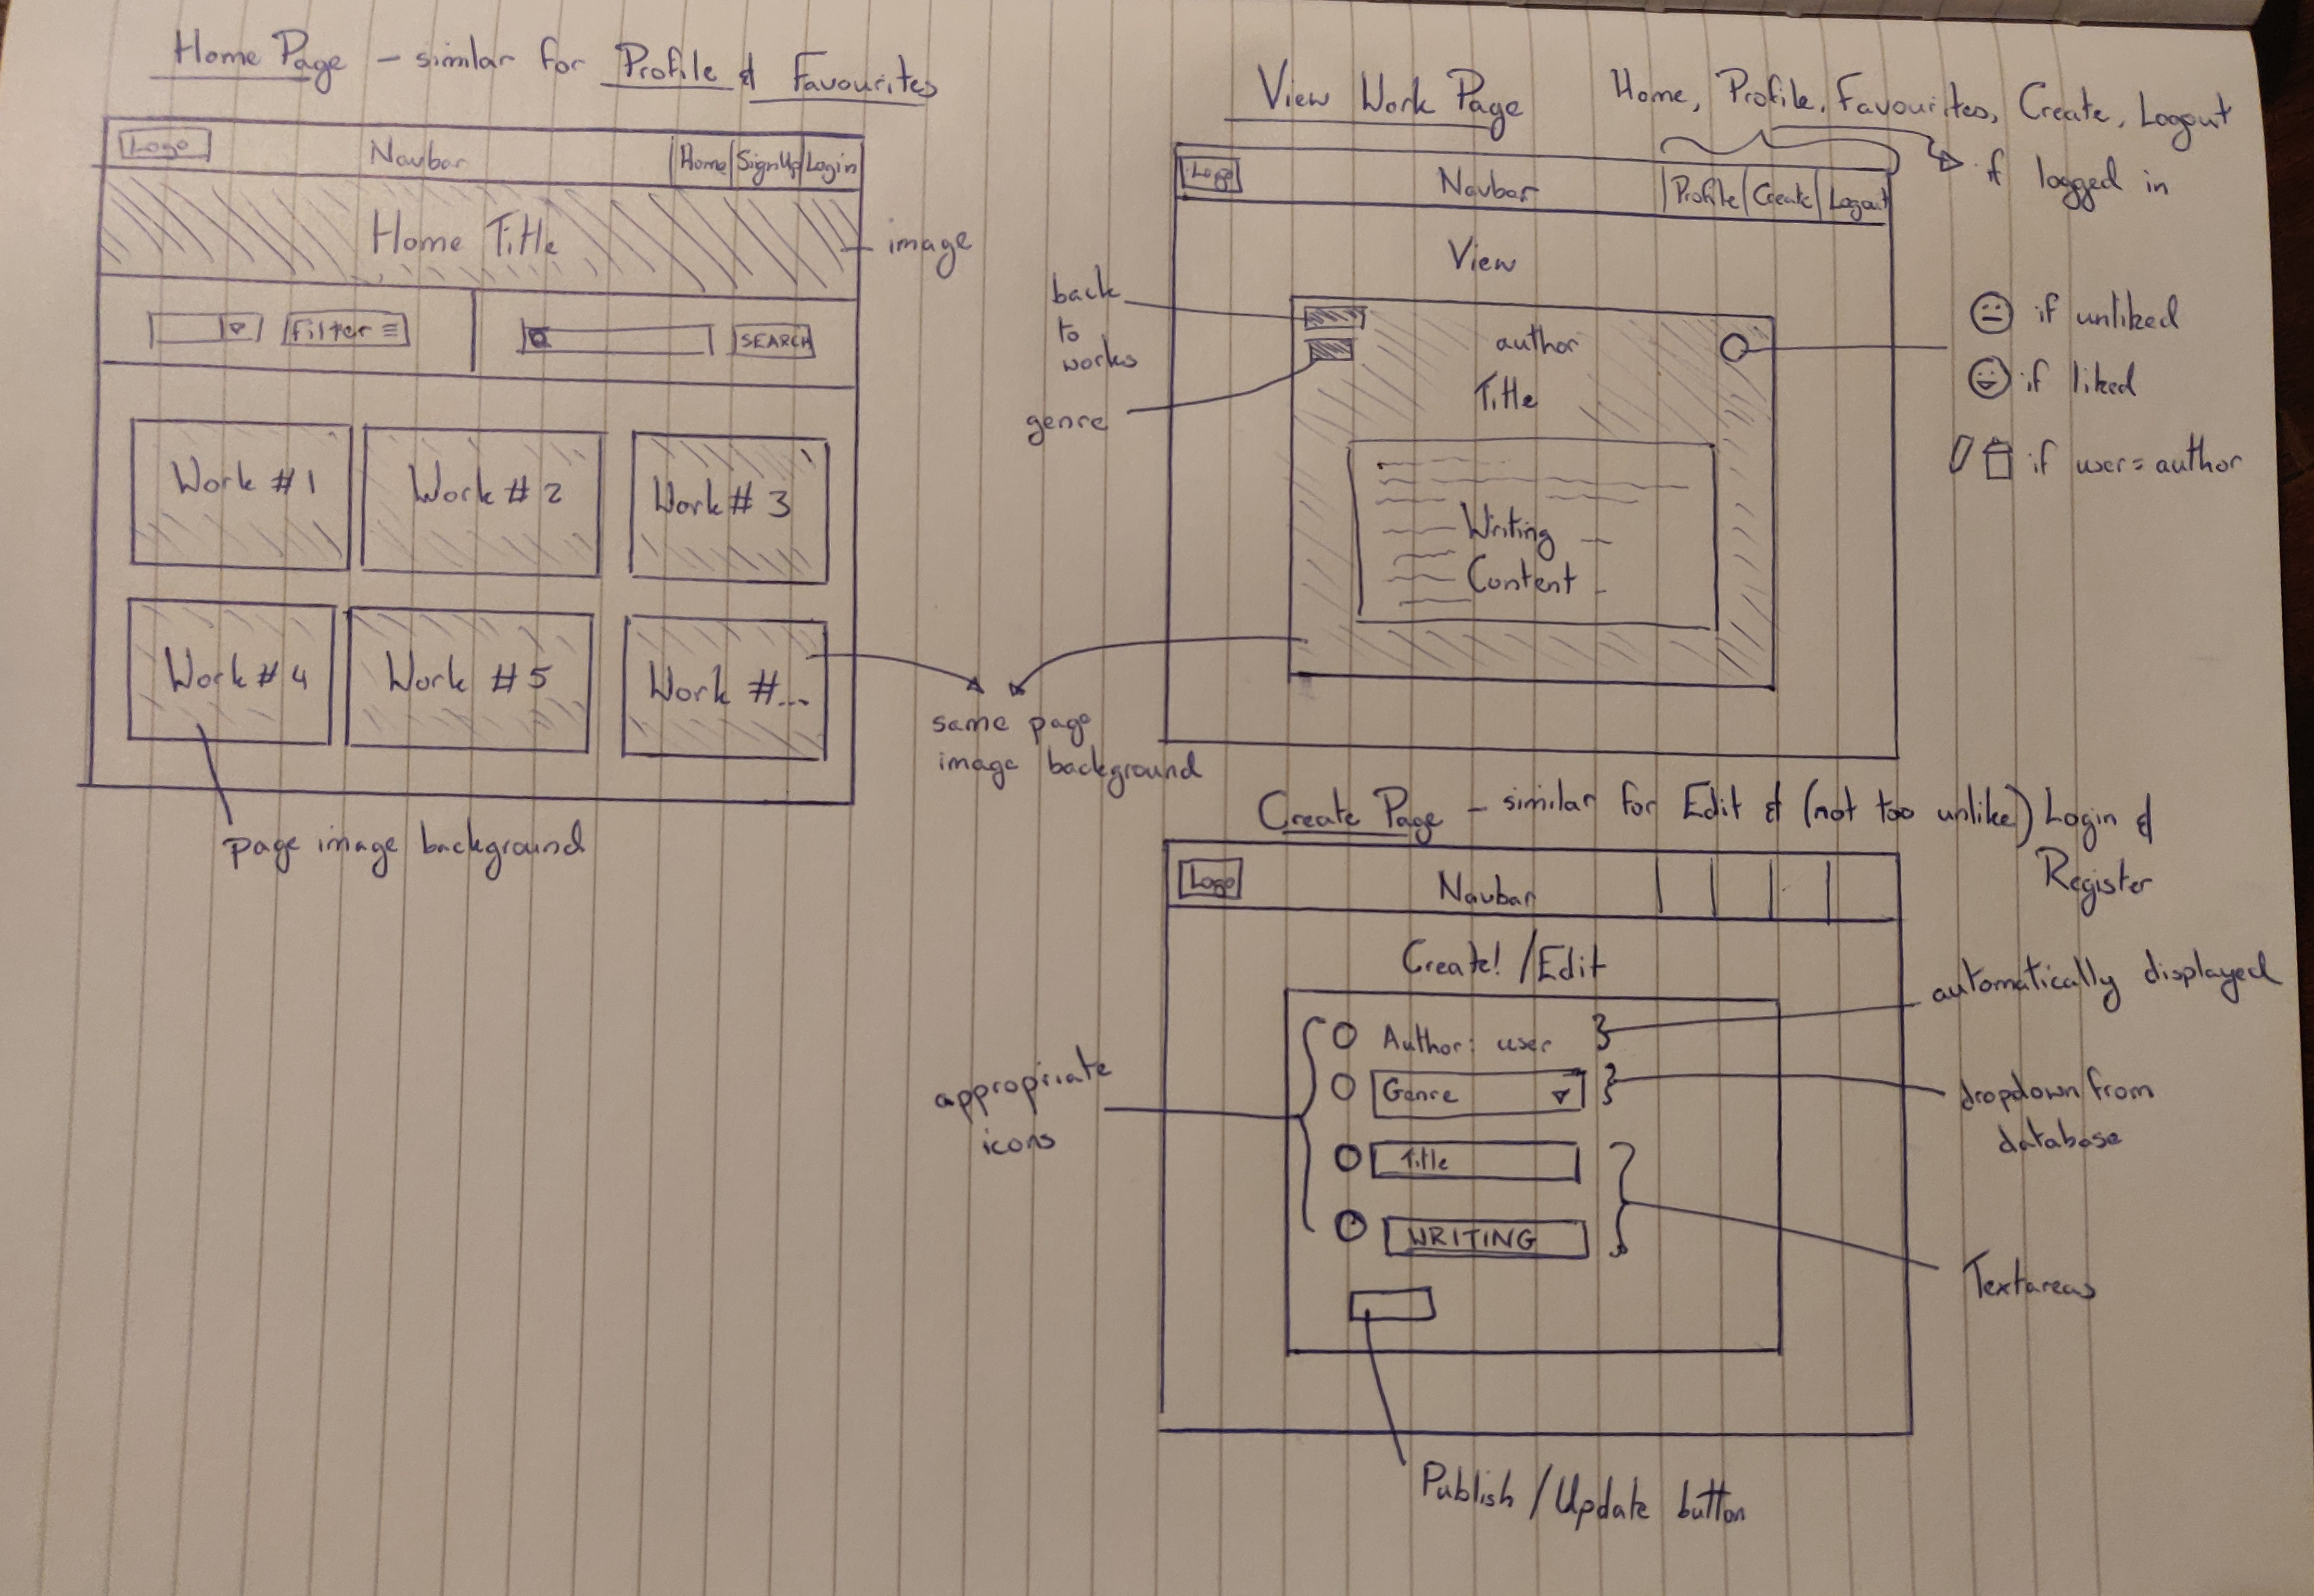 Home Page - similar for Profile & Favourites
Logo Navbar Home SignUp Login
Home Title
image
filter
SEARCH
Work #1 Work #2 Work #3
Work #4 Work #5 Work #...
page image background
same page
image background
View Work Page
Home, Profile, Favourites, Create, Logout
if logged in
Logo Navbar Profile Create Logout
View
back
to
works
genre
author
Title
Writing
Content
if unliked
if liked
if user = author
Create Page - similar for Edit & (not too unlike) Login &
Register
Logo Navbar
Create! /Edit
Author: user
Genre
Title
WRITING
appropriate
icons
automatically displayed
dropdown from
database
Textareas
Publish / Update button